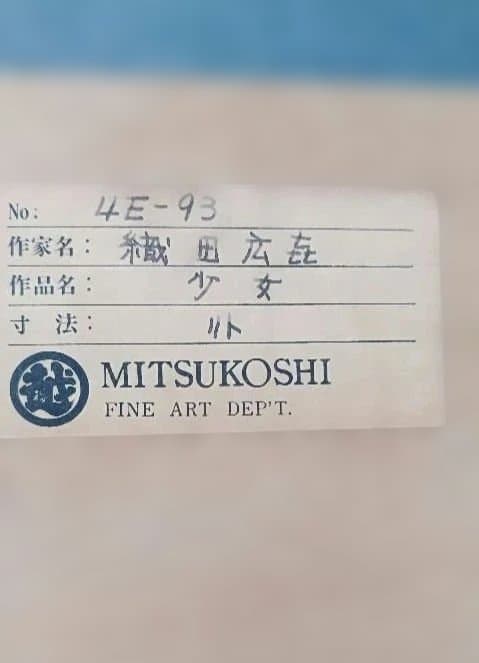 No: 4E-93
作家名: 織田広喜
作品名: 少女
寸 法: リト
越 MITSUKOSHI
FINE ART DEP'T.